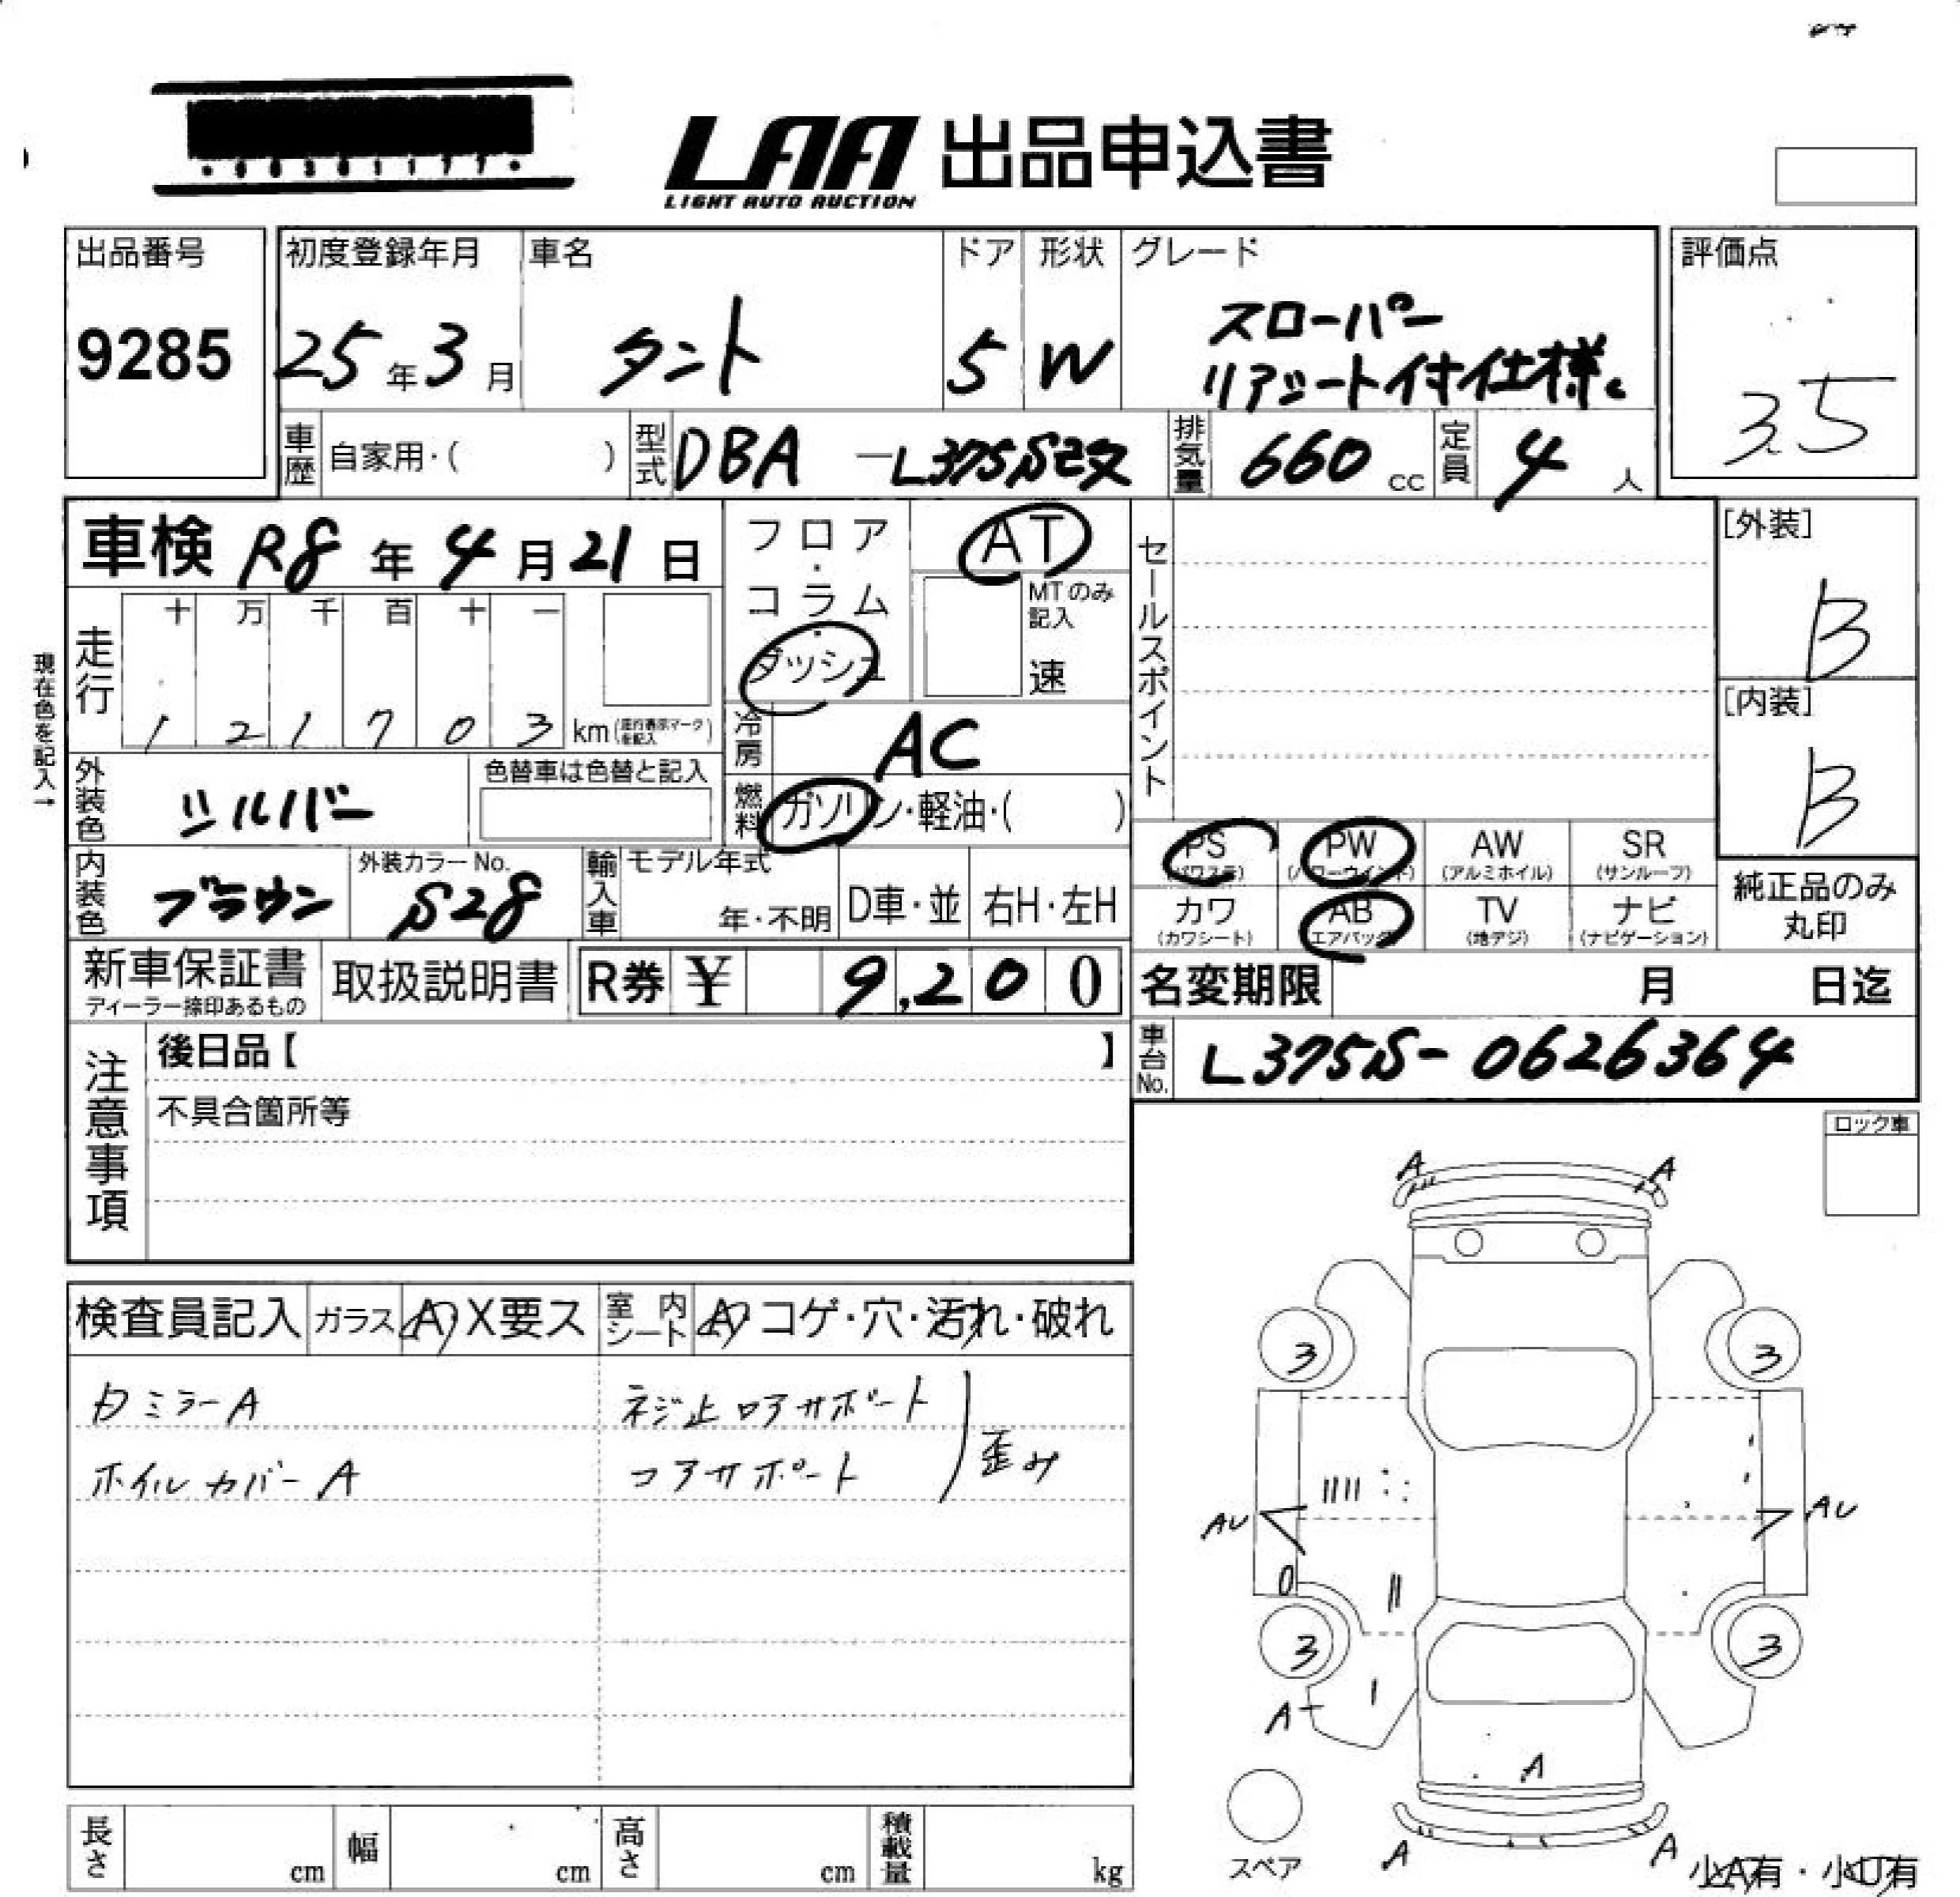 LAA 出品申込書
LIGHT AUTO AUCTION
出品番号
9285
初度登録年月
25年3月
車名
タント
ドア
5
形状
W
グレード
スローパー
リアシート付仕様
評価点
3.5
車歴 自家用・( )
型式 DBA -L375S改
排気量 660 cc
定員 4 人
車検 R8年4月21日
フロア・コラム・ダッシュ
AT
MTのみ記入
速
セールスポイント
[外装]
B
[内装]
B
現在色を記入→
走行
十 万 千 百 十 一
1 2 1 7 0 3 km(走行表示マークを記入)
冷房 AC
外装色 シルバー
色替車は色替と記入
燃料 ガソリン・軽油・( )
PS (パワステ)
PW (パワーウインド)
AW (アルミホイル)
SR (サンルーフ)
カワ (カワシート)
AB (エアバッグ)
TV (地デジ)
ナビ (ナビゲーション)
純正品のみ丸印
内装色 ブラウン
外装カラーNo.
S28
輸入車 モデル年式
年・不明
D車・並
右H・左H
新車保証書
ディーラー捺印あるもの
取扱説明書
R券 ¥ 9,200
名変期限 月 日迄
車台No. L375S-0626364
注意事項
後日品【 】
不具合箇所等
ロック車
検査員記入
ガラス A X要ス
室内シート A コゲ・穴・汚れ・破れ
ミラーA
ホイルカバーA
ネジ止ロアサポート
コアサポート
歪み
A A
3 3
AU AU
3 3
A
A
A A
スペア
小A有・小U有
長さ cm
幅 cm
高さ cm
積載量 kg